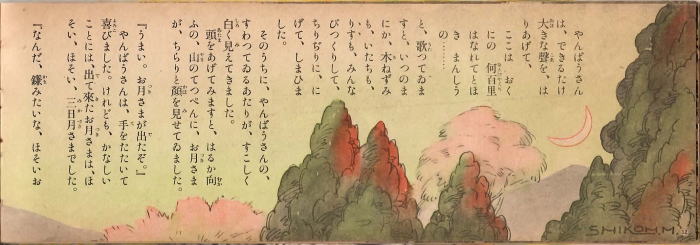 やんばうさん
は、できるだけ
大きな聲を、は
りあげて、
ここは おく
にの 何百里
はなれてとほ
き まんしう
の……。
と、歌つてゐま
すと、いつのま
にか、木ねずみ
も、いたちも、
りすも、みんな
びつくりして、
ちりぢりに、に
げて、しまひま
した。
そのうちに、やんばうさんの、
すわつてゐるあたりが、すこしく
白く見えてきました。
頭をあげてみますと、はるか向
ふの、山のてつぺんに、お月さま
が、ちらりと顏を見せてゐました。
『うまい。お月さまが出たぞ。』
やんばうさんは、手をたたいて
喜びました。けれども、かなしい
ことには、出て來たお月さまは、ほ
そい、ほそい、三日月さまでした。
『なんだ、鎌みたいな、ほそいお
SHIKOM.M.